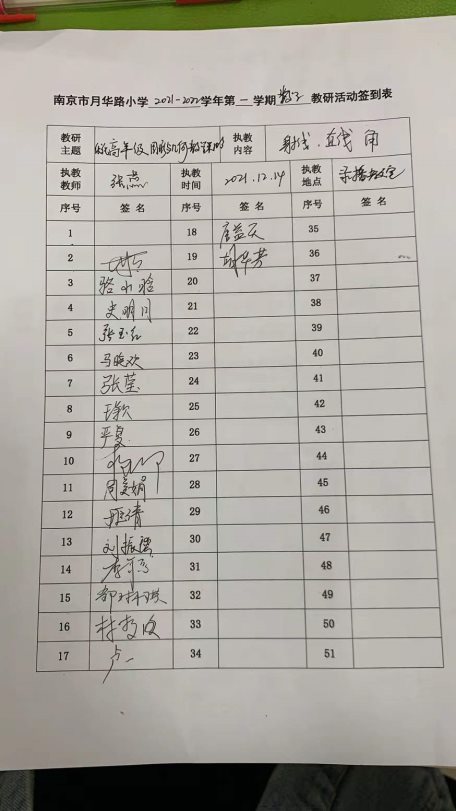 南京市月华路小学 2021-2022 学年第 一 学期 数学 教研活动签到表
教研主题 高年级图形与几何教课 执教内容 射线、直线、角
执教教师 张 执教时间 2021.12.14 执教地点 录播教室
序号 签名 序号 签名 序号 签名
1 18 唐益天 35
2 19 胡华芳 36
3 骆小玲 20 37
4 史明月 21 38
5 张玉红 22 39
6 马晓欢 23 40
7 张莹 24 41
8 王颖 25 42
9 严夏 26 43
10 27 44
11 周美娟 28 45
12 29 46
13 刘振 30 47
14 31 48
15 32 49
16 林 33 50
17 卢一 34 51